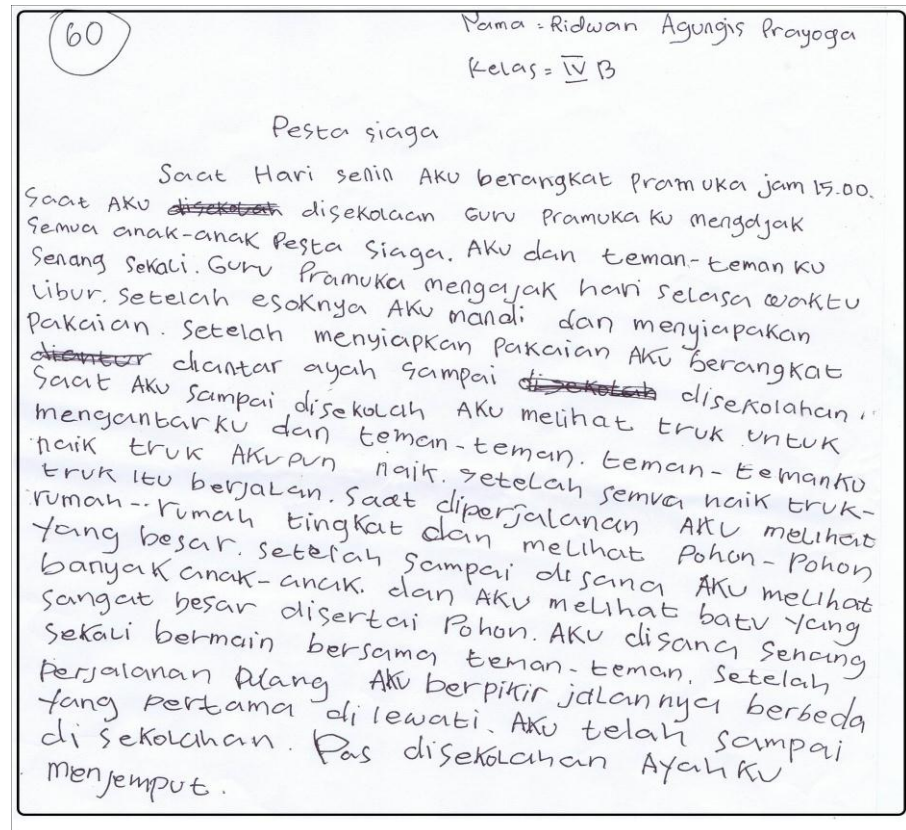 60
Nama = Ridwan Agungis Prayoga
Kelas = IV B
Pesta siaga
Saat Hari senin AKU berangkat Pramuka jam 15.00.
Saat AKU disekolah disekolaan Guru Pramuka Ku mengajak
Semua anak-anak Pesta Siaga. AKu dan teman-teman KU
Senang Sekali. Guru Pramuka mengajak hari selasa waktu
Libur. Setelah esoknya AKu mandi dan menyiapakan
Pakaian. Setelah menyiapkan Pakaian AKu berangkat
diantur diantar ayah Sampai disekolah disekolahan.
Saat AKu Sampai disekolah AKu melihat truk untuk
mengantarku dan teman-teman. teman-temanku
naik truk AKupun naik. Setelah semua naik truk-
truk itu berjalan. Saat diperjalanan AKu melihat
rumah-rumah tingkat dan melihat Pohon-Pohon
Yang besar. Setelah Sampai disana AKu melihat
banyak anak-anak. dan AKu melihat batu Yang
Sangat besar disertai Pohon. AKu disana Senang
Sekali bermain bersama teman-teman. Setelah
Perjalanan Pulang AKu berpikir jalannya berbeda
Yang Pertama dilewati. AKu telah Sampai
di Sekolahan. Pas disekolahan AYahKu
menjemput.